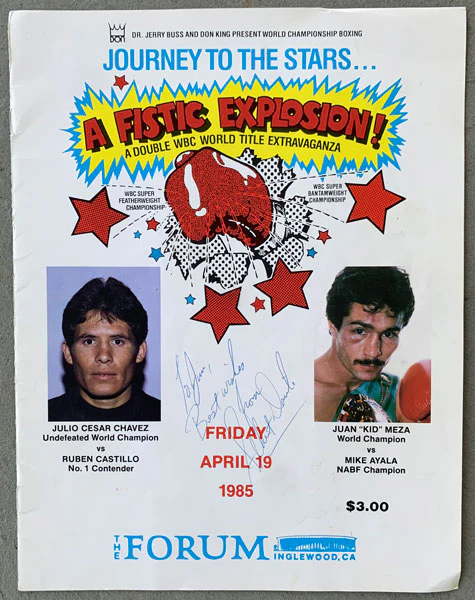 DON
DR. JERRY BUSS AND DON KING PRESENT WORLD CHAMPIONSHIP BOXING
JOURNEY TO THE STARS...
A FISTIC EXPLOSION!
A DOUBLE WBC WORLD TITLE EXTRAVAGANZA
WBC SUPER
FEATHERWEIGHT
CHAMPIONSHIP
WBC SUPER
BANTAMWEIGHT
CHAMPIONSHIP
JULIO CESAR CHAVEZ
Undefeated World Champion
vs
RUBEN CASTILLO
No. 1 Contender
Best wishes
from
FRIDAY
APRIL 19
1985
JUAN "KID" MEZA
World Champion
vs
MIKE AYALA
NABF Champion
$3.00
THE FORUM
INGLEWOOD, CA